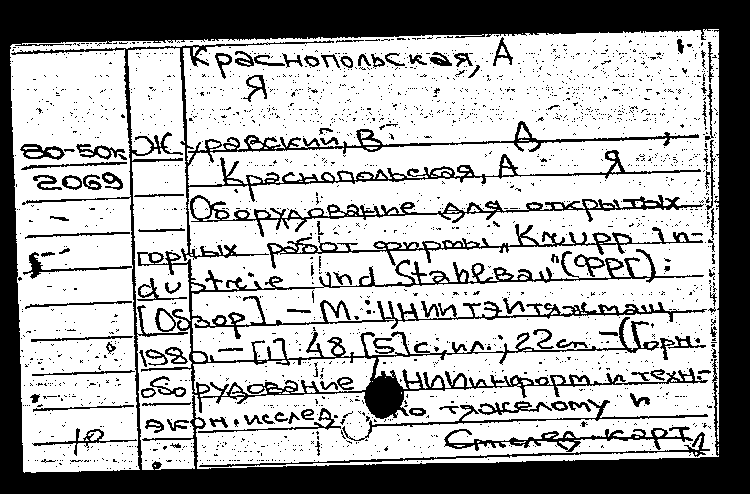 Краснопольская, А
Я
80-50к Журавский, В. Д ,
2069 Краснопольская, А Я
Оборудование для открытых
горных работ фирмы „Krupp in-
dustreie und Stahlbau" (ФРГ):
[Обзор]. – М.: ЦНИИТЭИтяжмаш,
1980. – [1], 48, [5] с., ил.; 22 см. – (Горн.
оборудование ЦНИИинформ. и техн.-
экон. исслед. по тяжелому и
10 См. след. карт